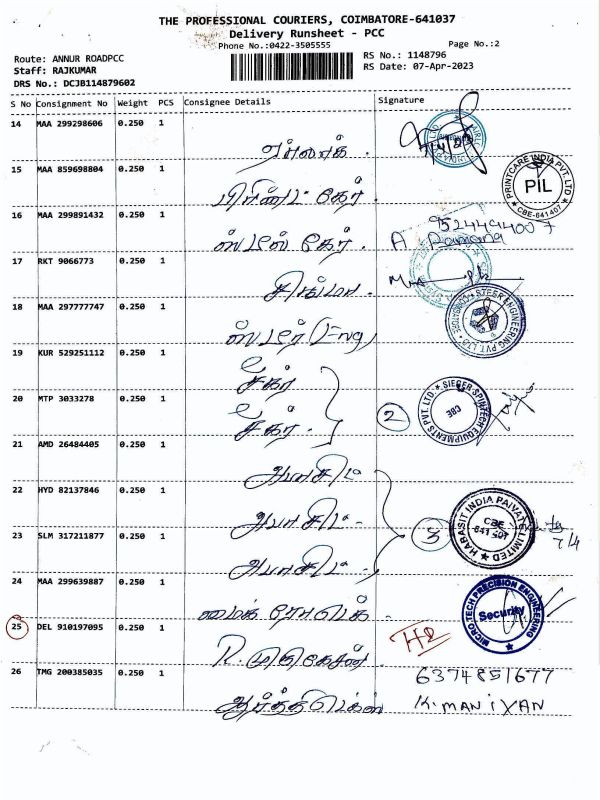 THE PROFESSIONAL COURIERS, COIMBATORE-641037
Delivery Runsheet - PCC
Phone No.:0422-3505555
Page No.:2
Route: ANNUR ROADPCC
RS No.: 1148796
Staff: RAJKUMAR
RS Date: 07-Apr-2023
DRS No.: DCJB114879602
S No Consignment No Weight PCS Consignee Details Signature
14 MAA 299298606 0.250 1
15 MAA 859698804 0.250 1
பிரிண்ட் கேர்
PRINTCARE INDIA PVT. LTD
PIL
CBE-641407
16 MAA 299891432 0.250 1
9524494007
ஸ்டீல் கேர்
A Ramana
17 RKT 9066773 0.250 1
சிக்மா
18 MAA 297777747 0.250 1
ஸ்டீர் (Eng)
STEER ENGINEERING PVT. LTD
19 KUR 529251112 0.250 1
சீகர்
20 MTP 3033278 0.250 1
சீகர்
2
SIEGER SPINTECH EQUIPMENTS PVT. LTD.
CBE
21 AMD 26484405 0.250 1
அபாசிட்
22 HYD 82137846 0.250 1
அபாசிட்
23 SLM 317211877 0.250 1
அபாசிட்
3
HABASIT INDIA PAIVATE LIMITED
CBE
641 407
7/4
24 MAA 299639887 0.250 1
மைக் ரோடெக்
MICROTECH PRECISION ENGINEERING
Security
25 DEL 910197095 0.250 1
R. முருகேசன்
26 TMG 200385035 0.250 1
6374851677
K. MANIYAN